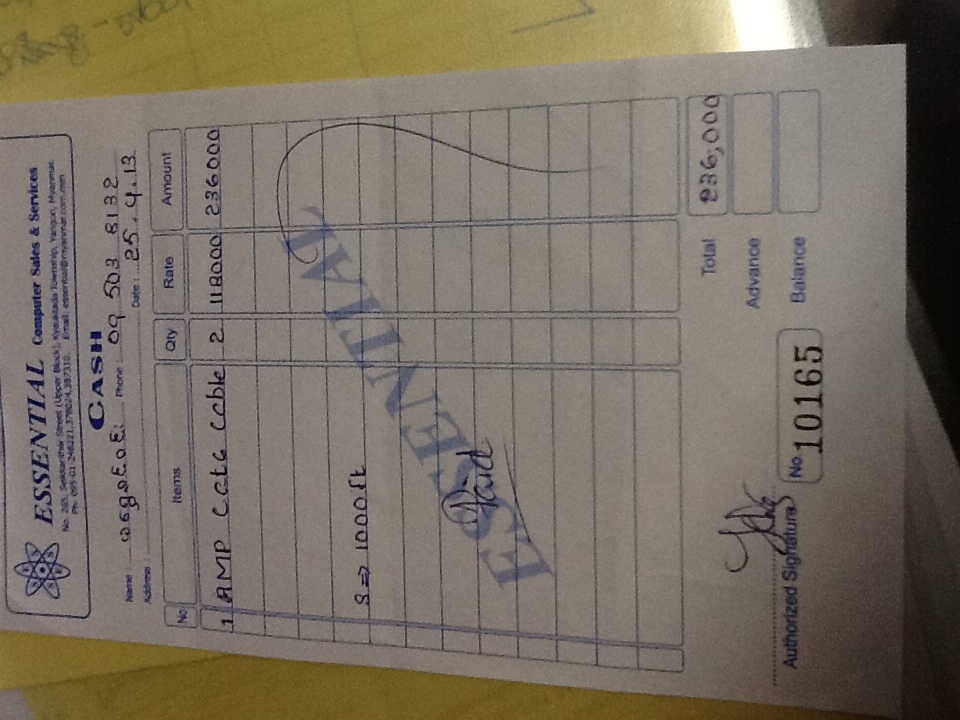 ESSENTIAL Computer Sales & Services
No. 265, Seikkanthar Street (Upper Block), Kyauktada Township, Yangon, Myanmar.
Ph: 095-01-246221, 378024, 387310. Email: essential@myanmar.com.mm
CASH
Name : Phone : 09 503 8132
Address : Date : 25.4.13
No Items Qty Rate Amount
1 AMP Cat6 Cable 2 118000 236000
S => 1000 ft
ESSENTIAL
Paid
Total 236,000
Advance
Authorized Signature No. 10165 Balance